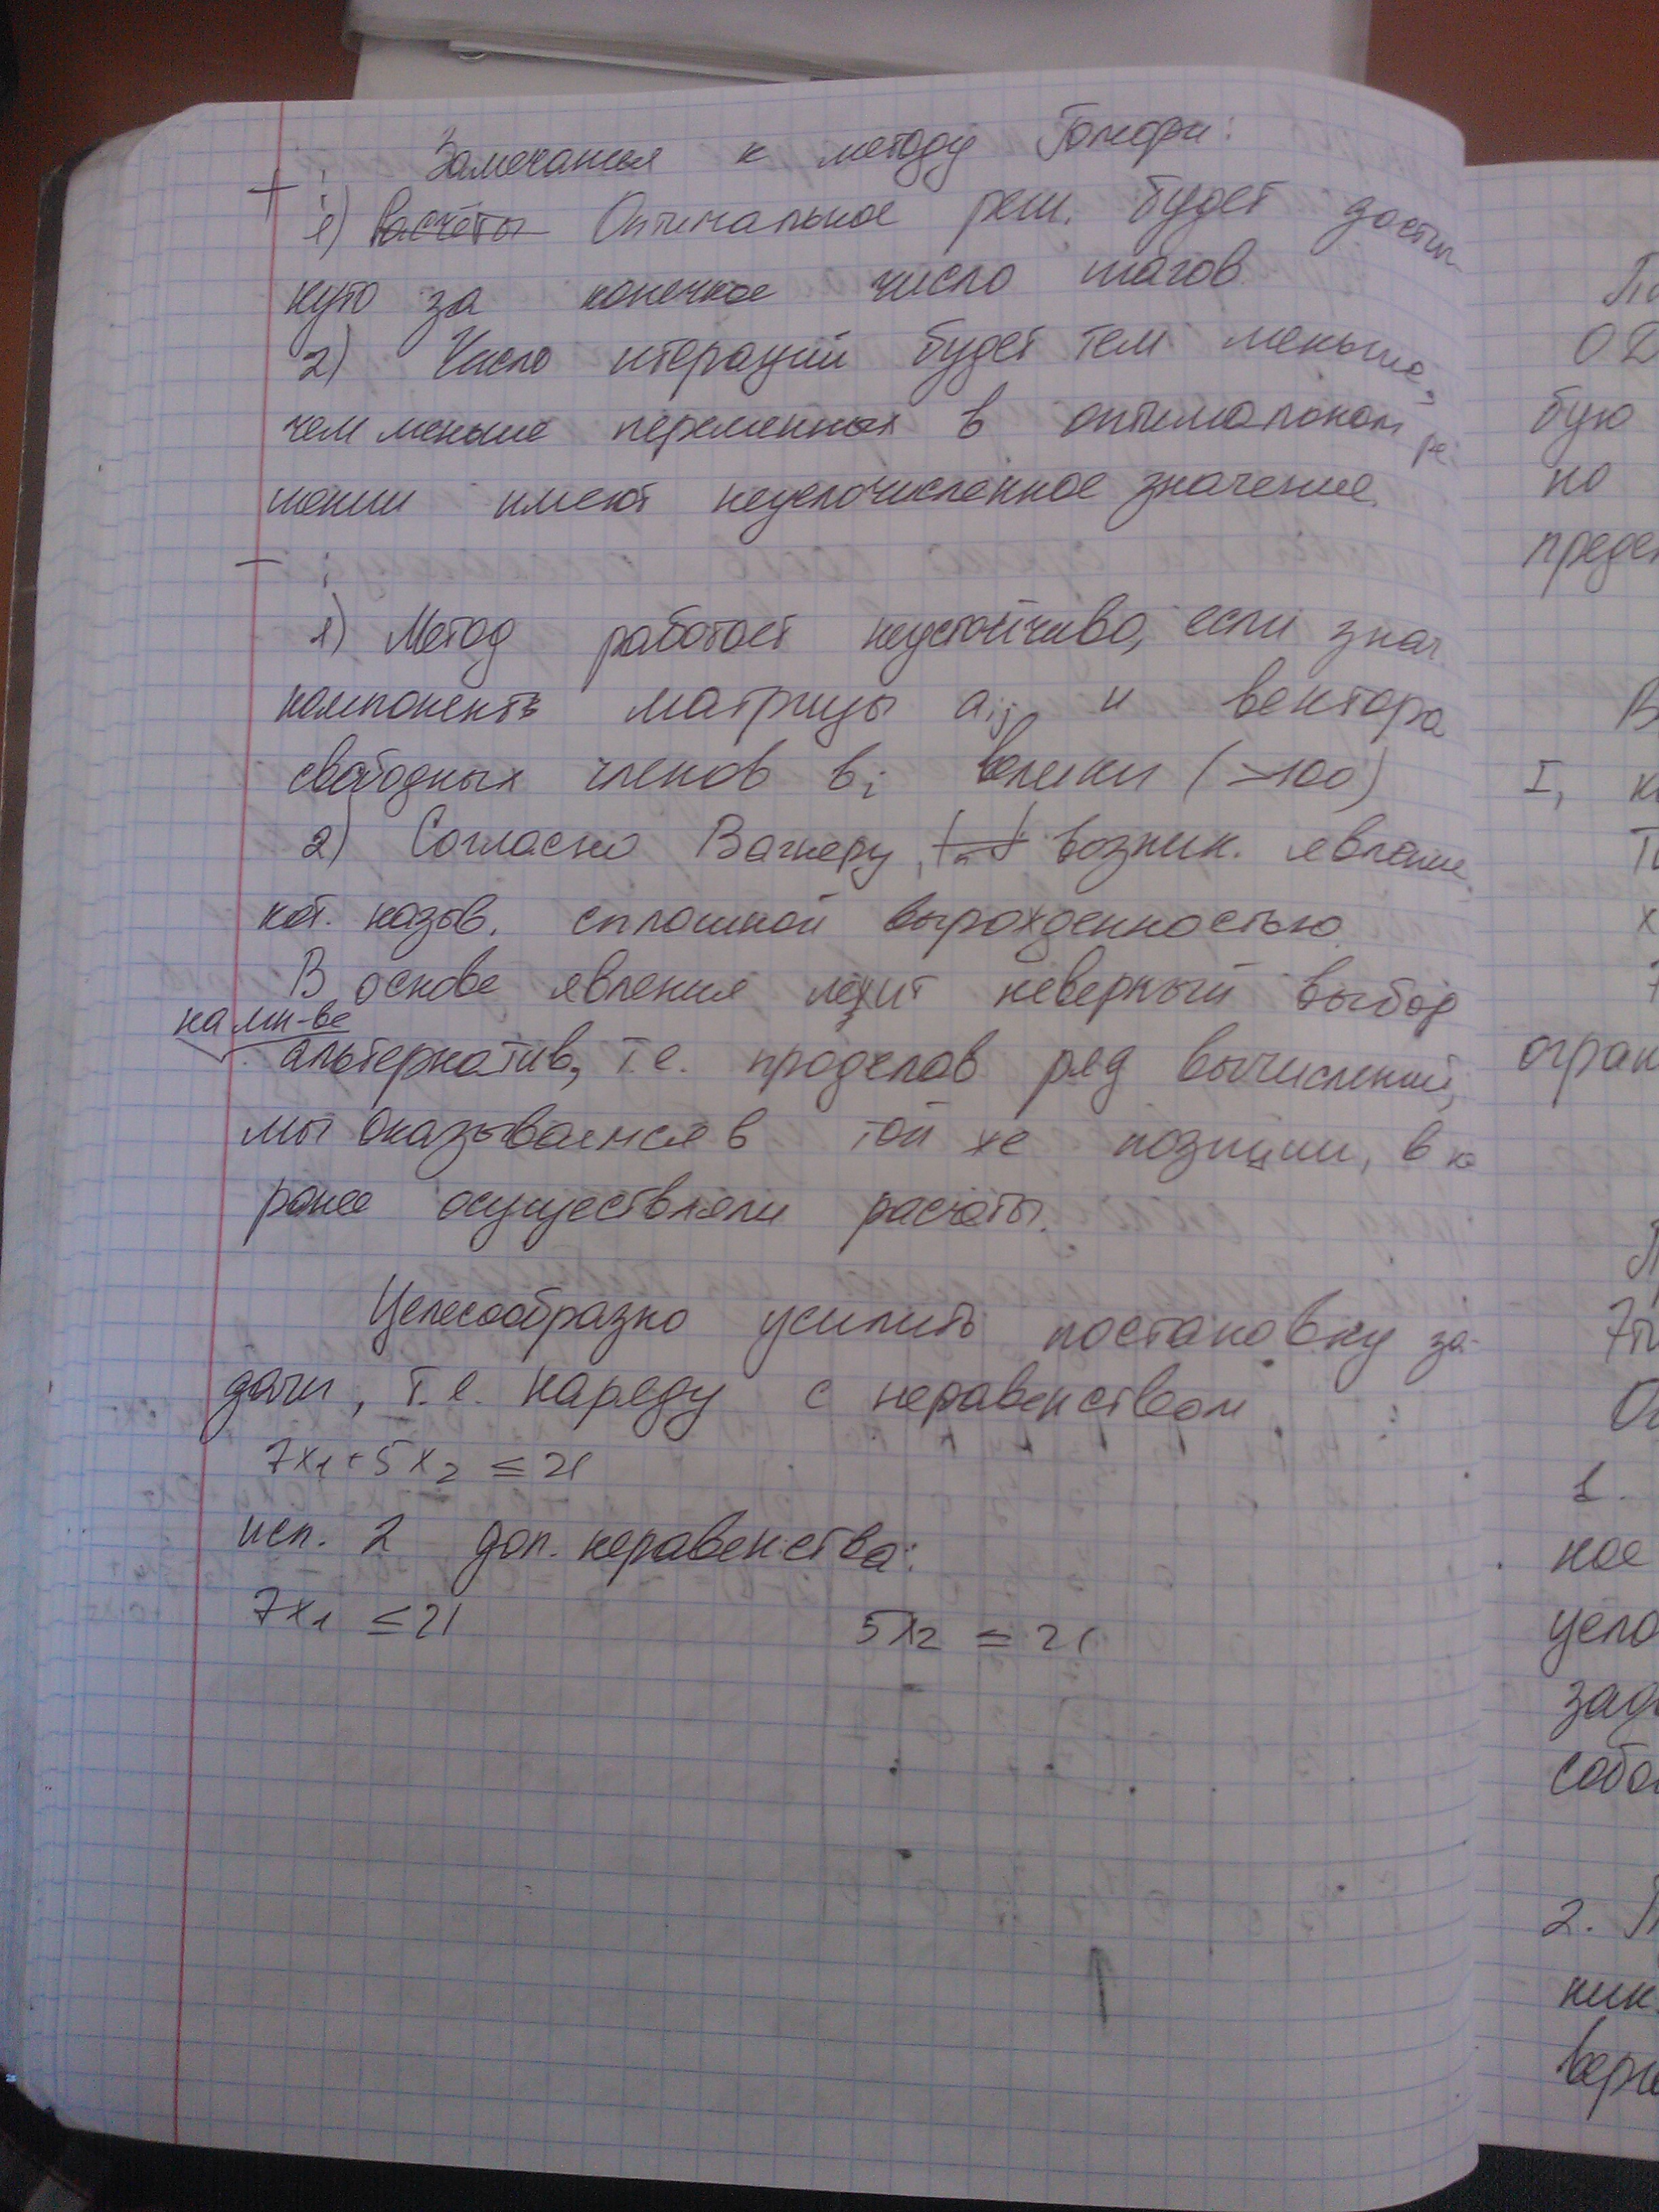 Замечания к методу Гомори:
+ :
1) Расчёты Оптимальное реш. будет достиг
нуто за конечное число шагов.
2) Число итераций будет тем меньше,
чем меньше переменных в оптимальном ре
шении имеют нецелочисленное значение.
- :
1) Метод работает неустойчиво, если знач.
компонент матрицы aij и вектора
свободных членов bi велики (>100)
2) Согласно Вагнеру, возник. явление
кот. назыв. сплошной вырожденностью.
В основе явления лежит неверный выбор
на мн-ве
альтернатив, т.е. проделав ряд вычислений,
мы оказываемся в той же позиции, в к
ранее осуществляли расчёты.
Целесообразно усилить постановку за-
дачи, т.е. наряду с неравенством
7x1+5x2 ≤ 21
исп. 2 доп. неравенства:
7x1 ≤ 21 5x2 ≤ 21
По
ОД
бую
но
преде
В
I, к
х
7
огран
Л
О
1.
ное
цело
зад
собо
2. П
ник
верш